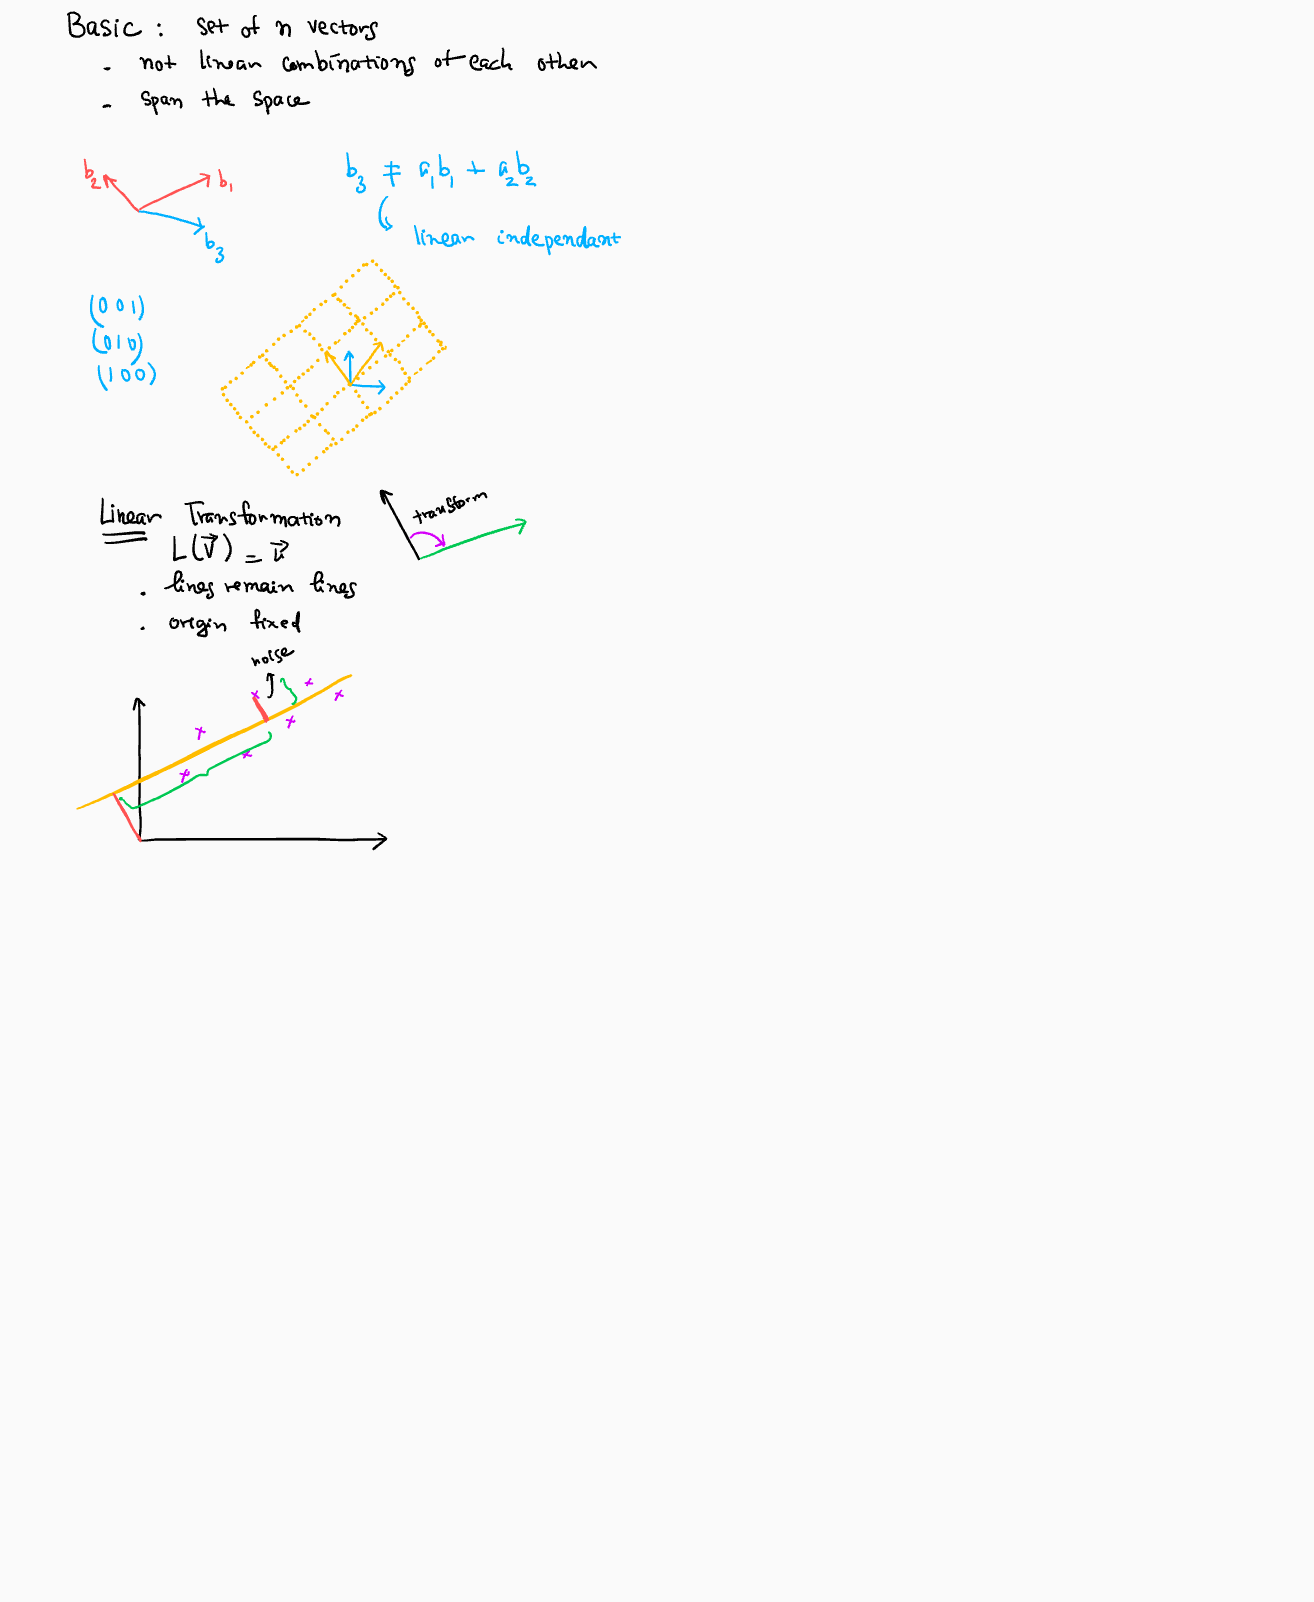 Basic : set of n vectors
- not linear combinations of each other
- span the space
b₂ b₁
b₃
b₃ ≠ a₁b₁ + a₂b₂
linear independant
(0 0 1)
(0 1 0)
(1 0 0)
Linear Transformation
transform
L(v⃗) = u⃗
. lines remain lines
. origin fixed
noise